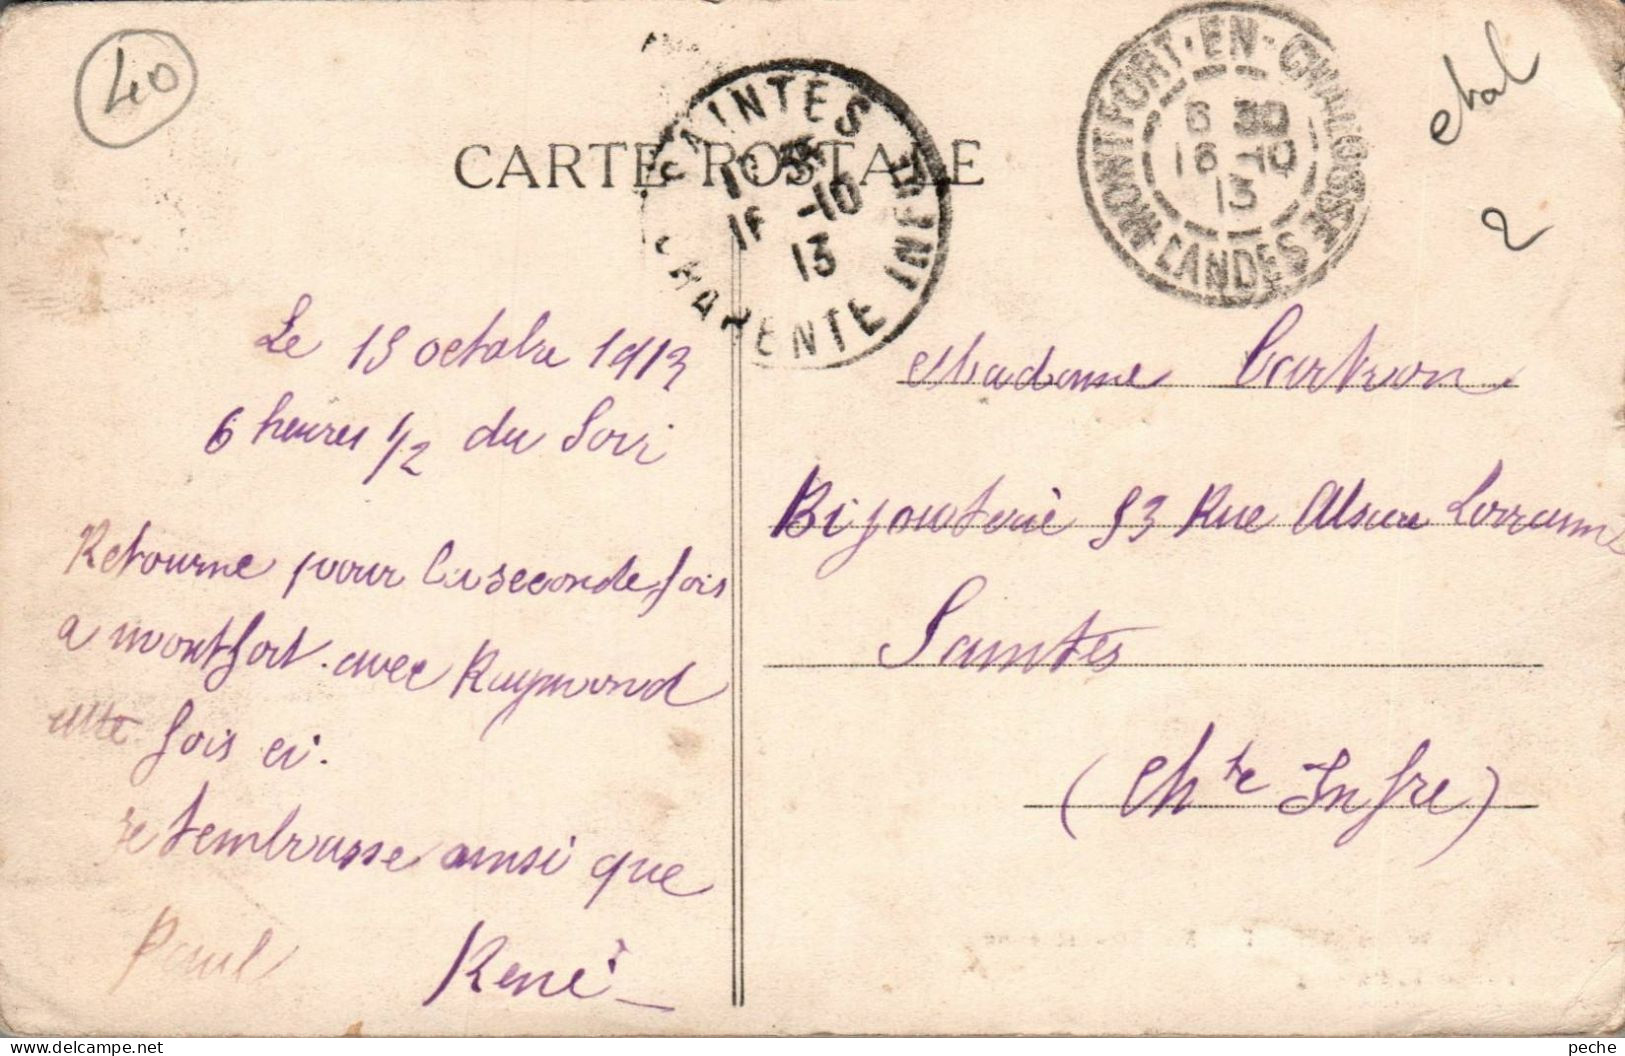 40
CARTE POSTALE
SAINTES
16 -10
13
CHARENTE INFRE
MONTFORT-EN-CHALOSSE
6 30
16 -10
13
LANDES
2
Le 15 octobre 1913
6 heures 1/2 du Soir
Retourne pour la seconde fois
a montfort avec Raymond
fois ci.
Je tembrasse ainsi que
Paul René
Madame Cartron
Bijouterie 53 Rue Alsace Lorraine
Saintes
(Chte Infre)
peche